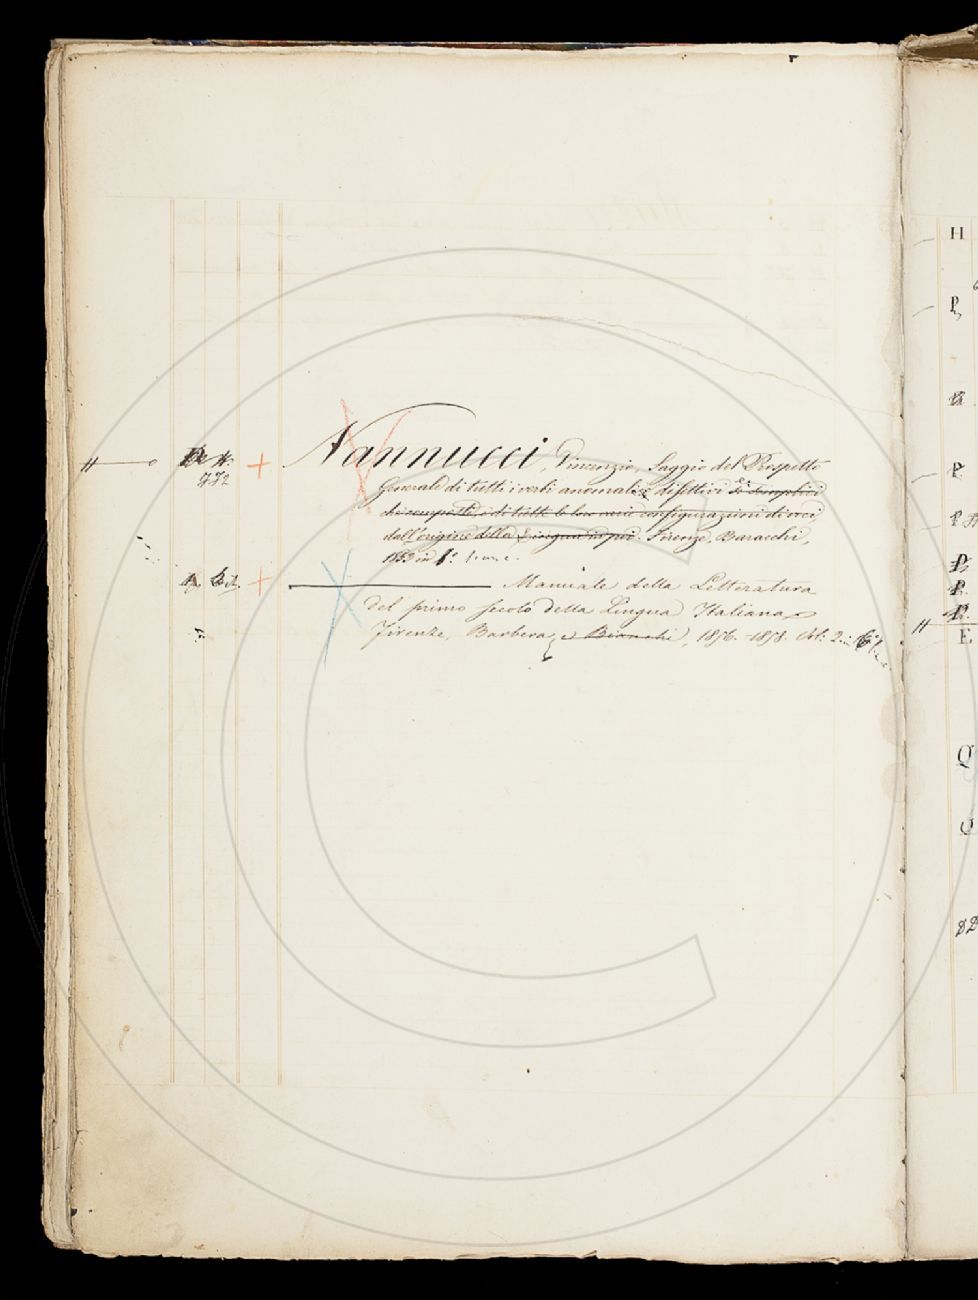 Nannucci, Vincenzio, Saggio del Prospetto
Generale di tutti i verbi anomali e difettivi sì semplici
che composti, e di tutte le loro varie configurazioni di voci
dall'origine della Lingua in poi. Firenze, Baracchi,
1853 in
772
Manuale della Letteratura
del primo secolo della Lingua Italiana
Firenze, Barbera e Bianchi, 1856-1858. Vol. 2 in
H
P
P
P
P
P
P
E
Q